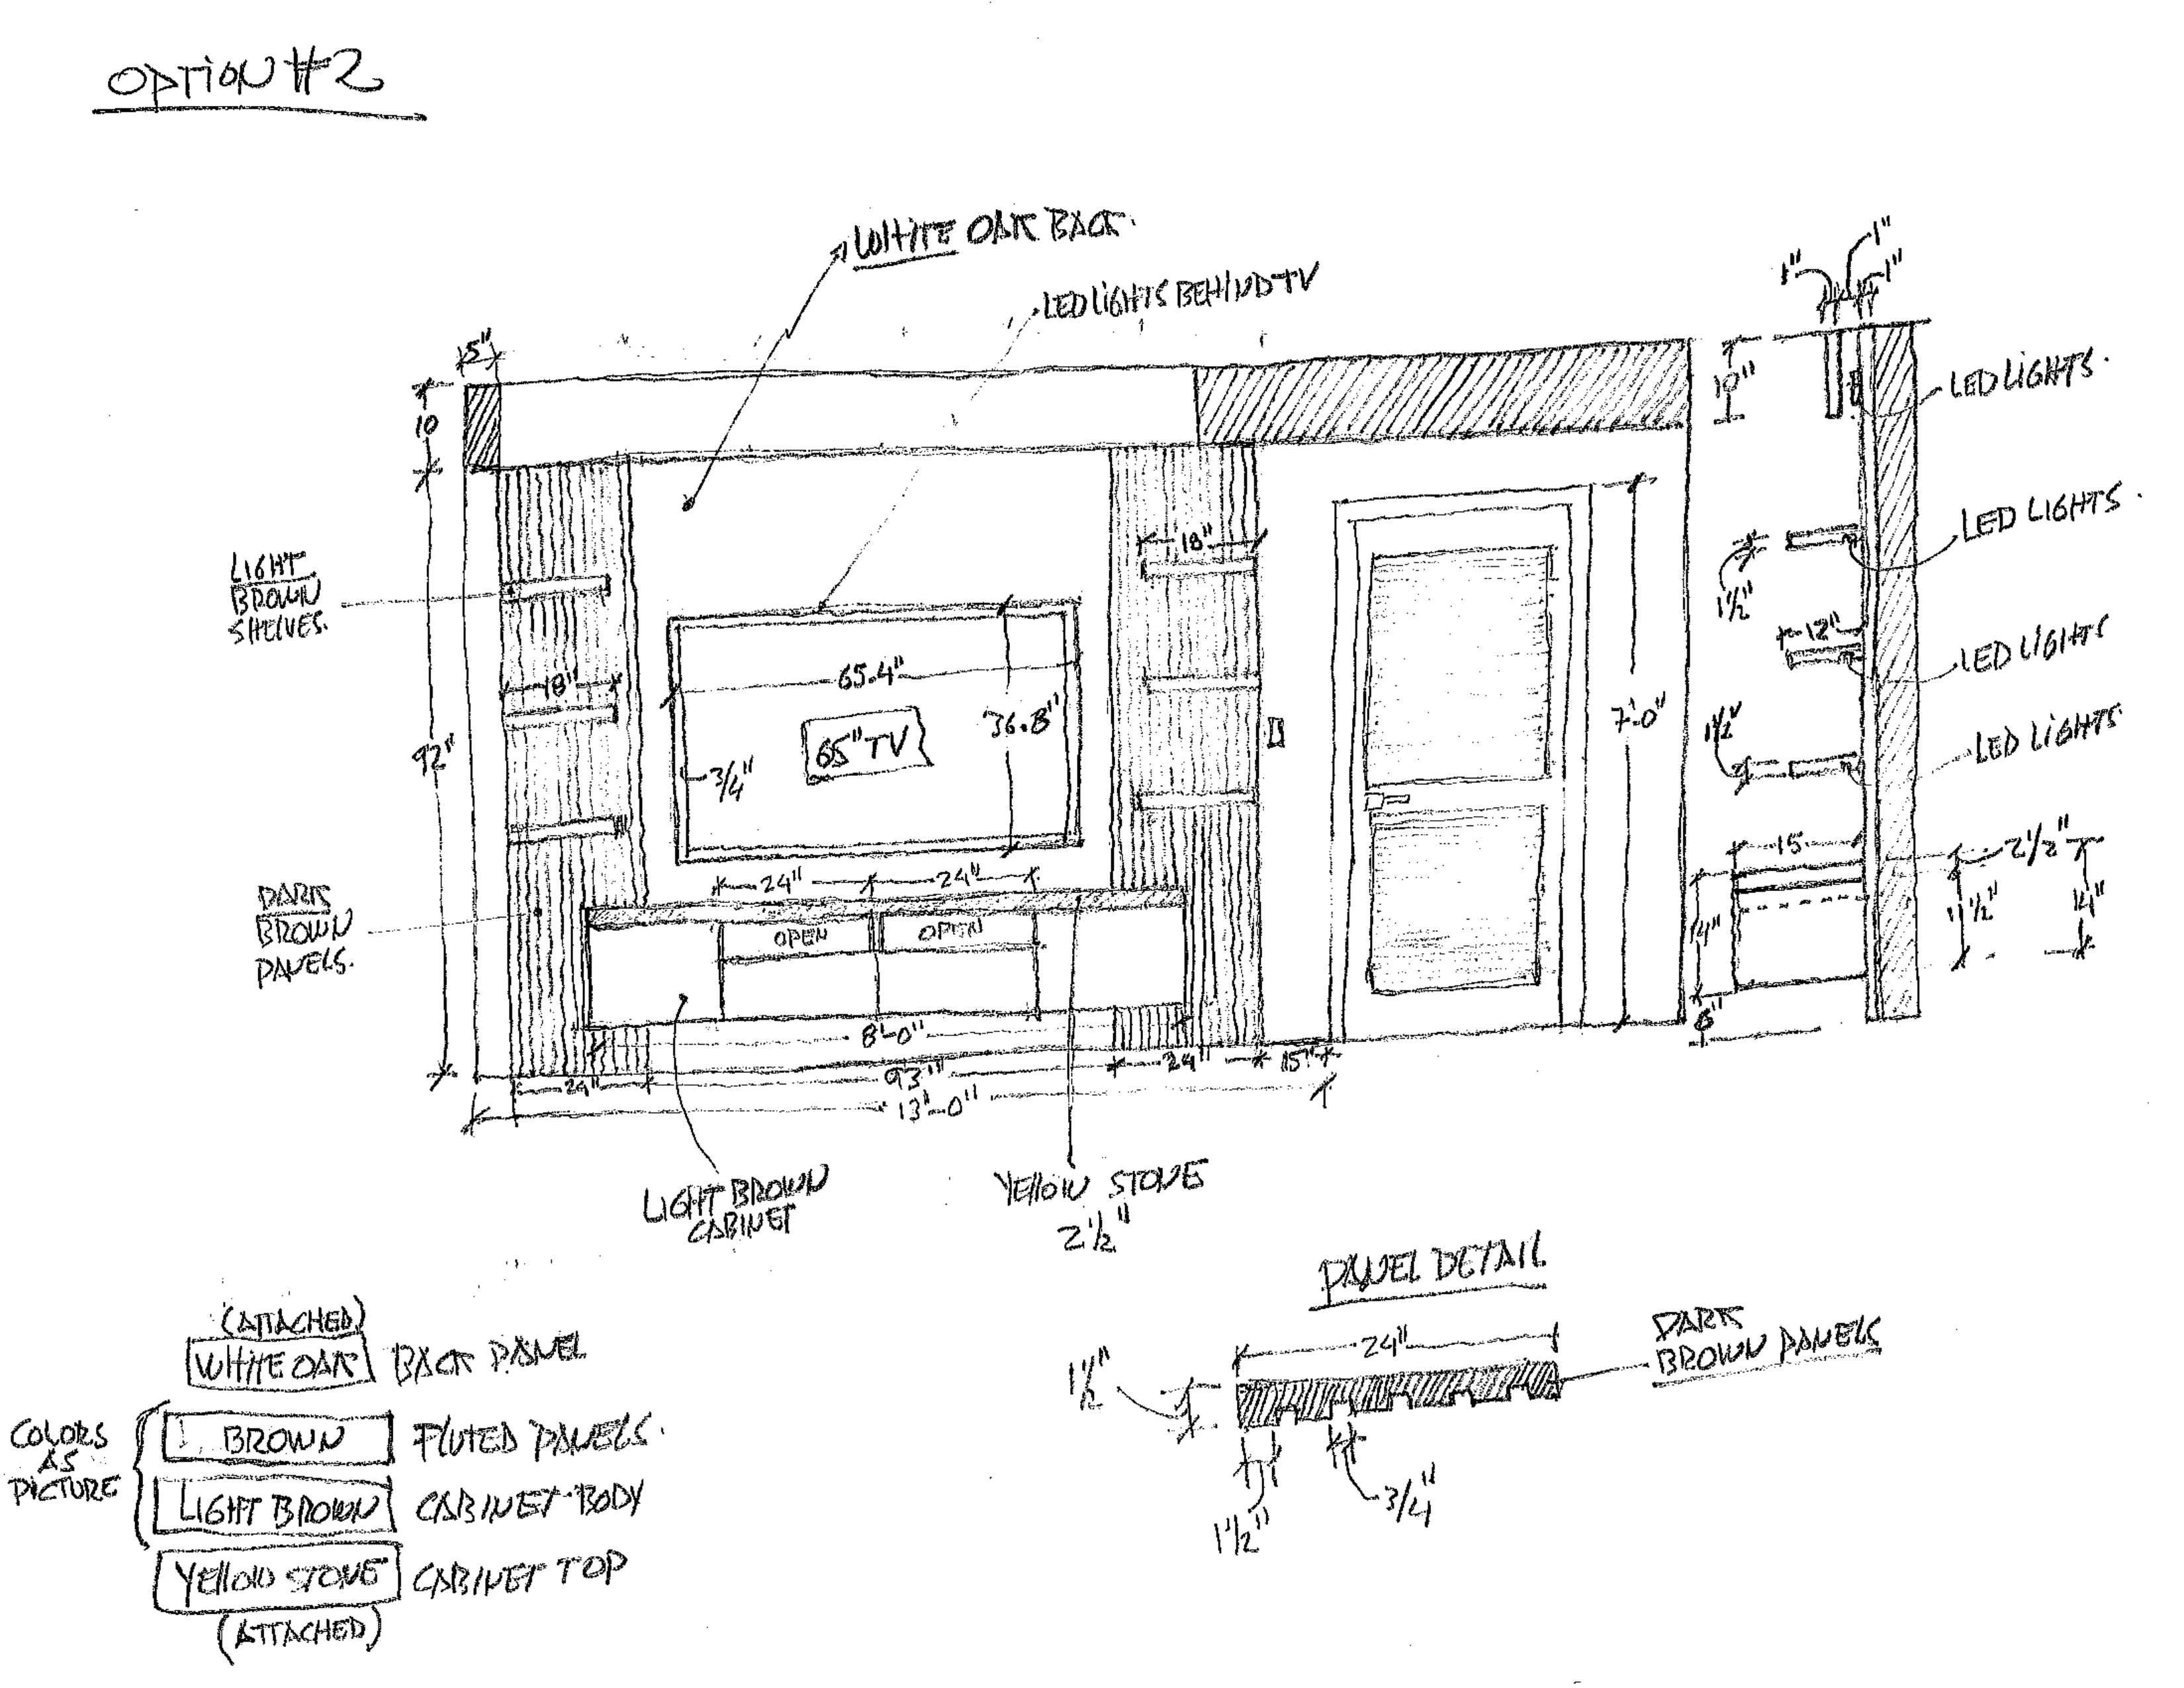 OPTION #2
WHITE OAK BACK.
LED LIGHTS BEHIND TV
5"
10
92"
LIGHT
BROWN
SHELVES.
18"
18"
65.4"
36.8"
65" TV
3/4"
7'-0"
24"
24"
OPEN
OPEN
DARK
BROWN
PANELS.
8'-0"
24"
93"
24"
15"
13'-0"
LIGHT BROWN
CABINET
YELLOW STONE
2 1/2"
1"
1"
1"
10"
LED LIGHTS.
LED LIGHTS.
1 1/2"
12"
LED LIGHTS
1 1/2"
LED LIGHTS.
15
2 1/2"
14"
11 1/2"
14"
6"
PANEL DETAIL
24"
1 1/2"
DARK
BROWN PANELS
1 1/2"
3/4"
(ATTACHED)
WHITE OAK BACK PANEL
COLORS
AS
PICTURE
BROWN FLUTED PANELS.
LIGHT BROWN CABINET BODY
YELLOW STONE CABINET TOP
(ATTACHED)